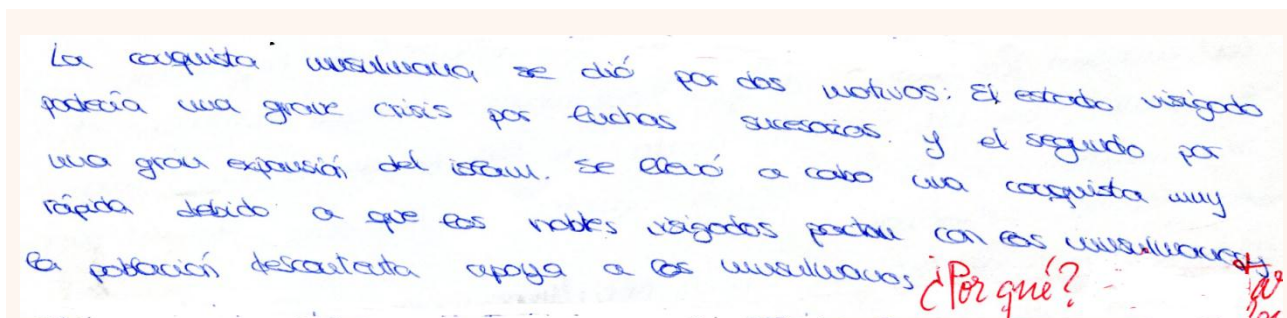 La conquista musulmana se dió por dos motivos: El estado visigodo
padecía una grave crisis por luchas sucesorias. y el segundo por
una gran expansión del islam. Se llevó a cabo una conquista muy
rápida debido a que los nobles visigodos pactan con los musulmanes y
la población descontenta apoya a los musulmanes ¿Por qué?